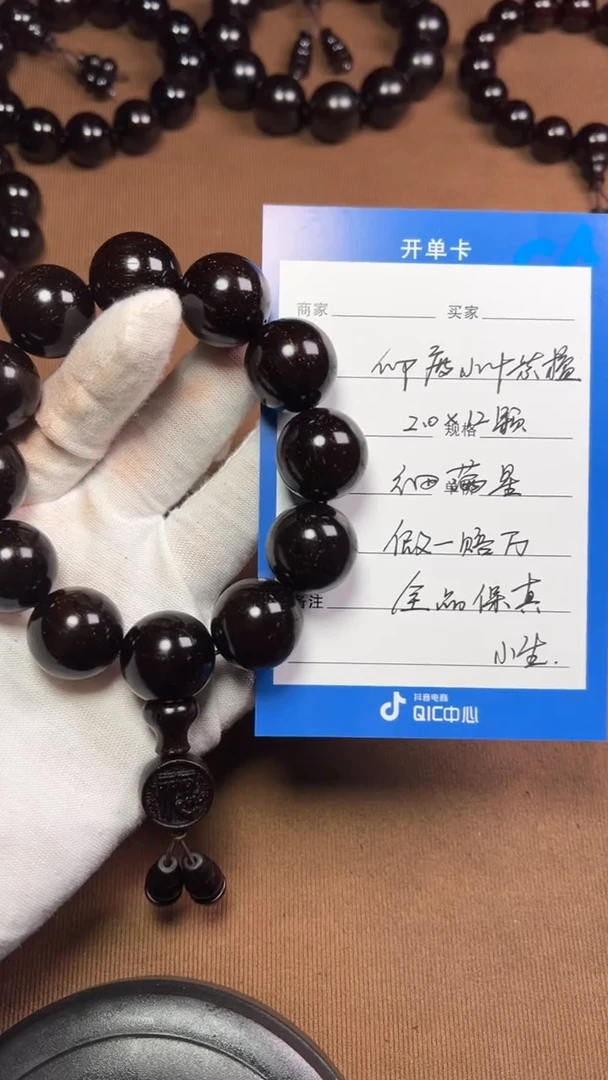 开单卡
商家 买家
印度小叶紫檀
2.0 规格 12颗
细 星
假一赔万
备注 全品保真
小生.
抖音电商
QIC中心